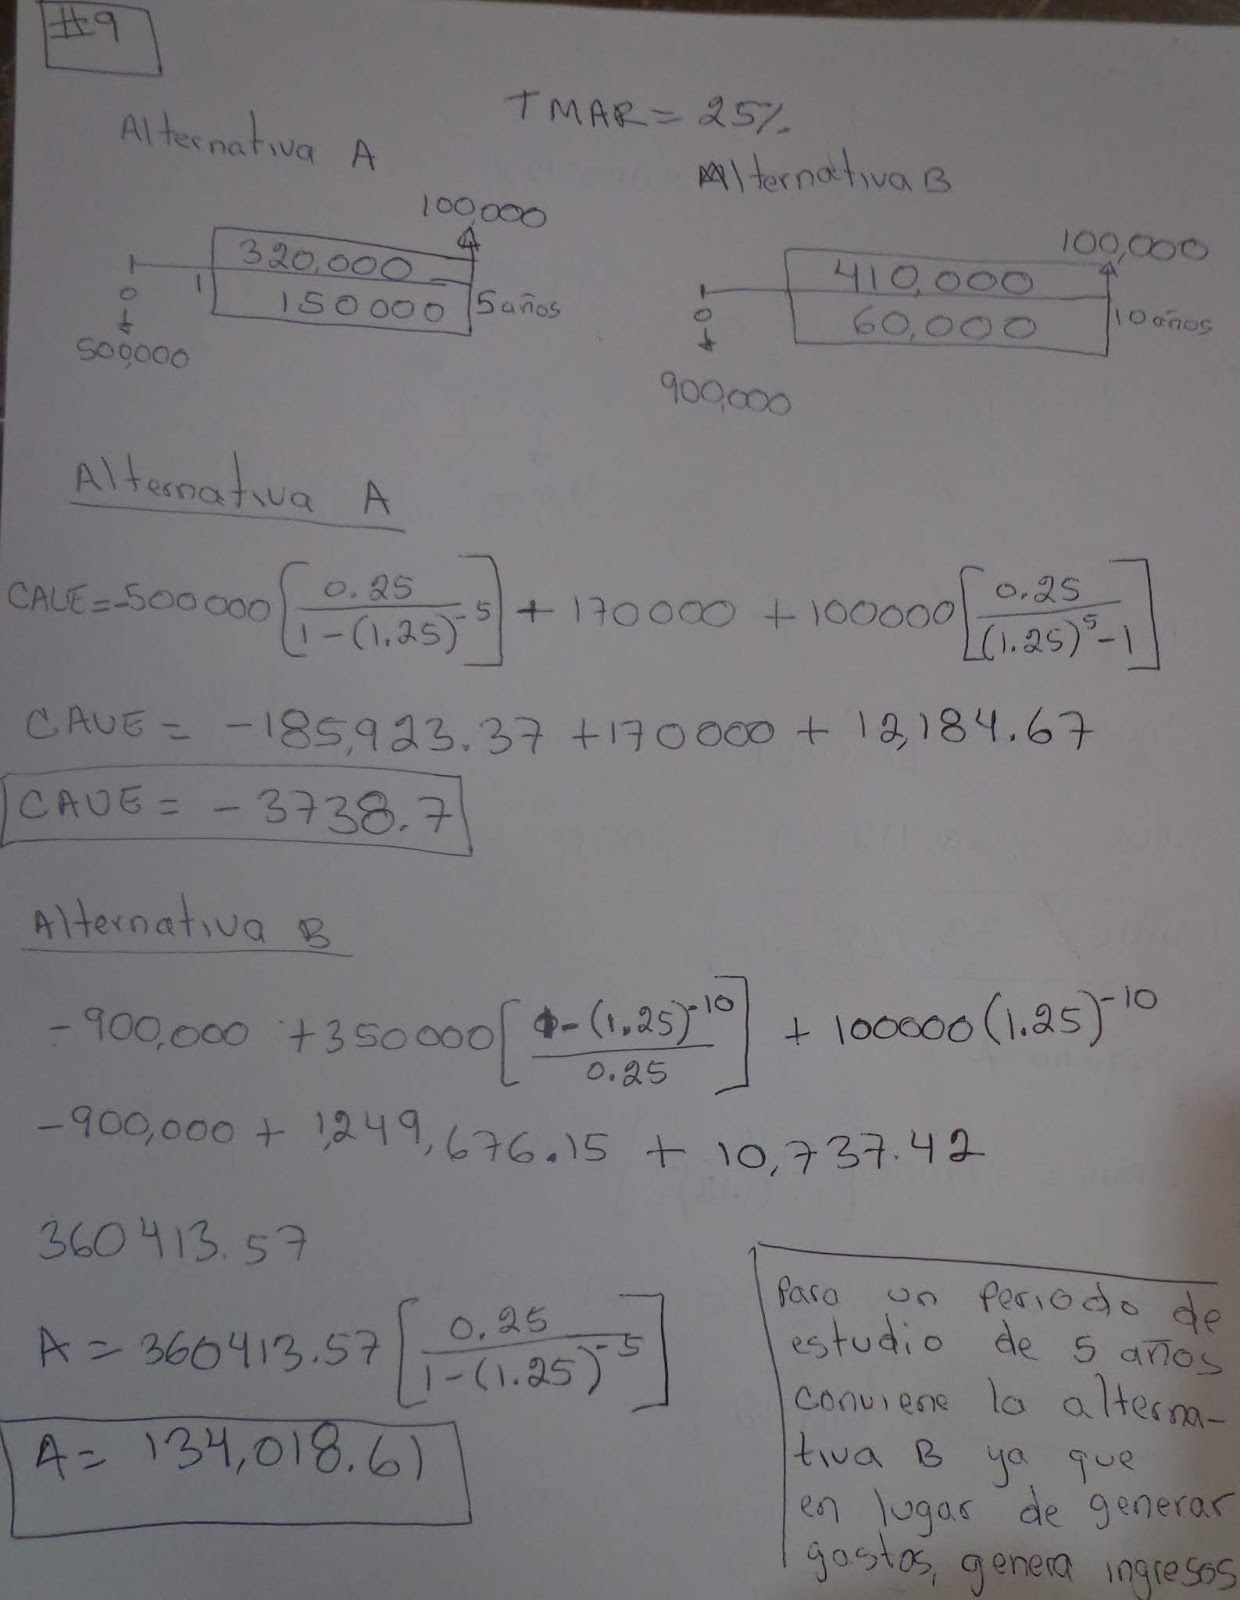 #9
TMAR = 25%
Alternativa A
Alternativa B
100,000
320,000
0
1
150000
5 años
500,000
100,000
410,000
0
60,000
10 años
900,000
Alternativa A
CAUE = -500000 [0.25 / 1-(1.25)^-5] + 170000 + 100000 [0.25 / (1.25)^5 -1]
CAUE = -185,923.37 + 170000 + 12,184.67
CAUE = -3738.7
Alternativa B
-900,000 + 350000 [1-(1.25)^-10 / 0.25] + 100000 (1.25)^-10
-900,000 + 1,249,676.15 + 10,737.42
360413.57
A = 360413.57 [0.25 / 1-(1.25)^-5]
A = 134,018.61
Para un periodo de
estudio de 5 años
conviene la alterna-
tiva B ya que
en lugar de generar
gastos, genera ingresos